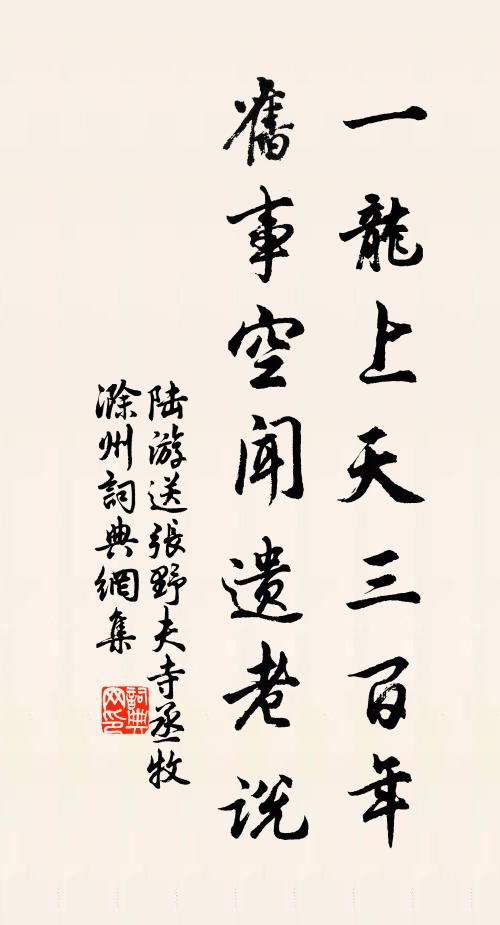 一龍上天三百年
舊事空聞遺老説
陆游送張野夫寺丞牧
滁州詞典網集
詞典网印